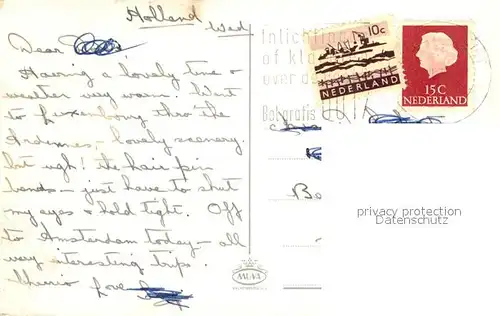 Holland
Wed
Dear
Having a lovely time &
weather very warm. Went
to Luxembourg thro the
Ardennes, - lovely scenery
but ugh! the hair pin
bends - just have to shut
my eyes & hold tight. Off
to Amsterdam today - all
very interesting trip.
Cheerio Love
Inlichting
of kla
over d
Bel gratis
10c
NEDERLAND
15C
NEDERLAND
Bo
privacy protection
Datenschutz
MUVA